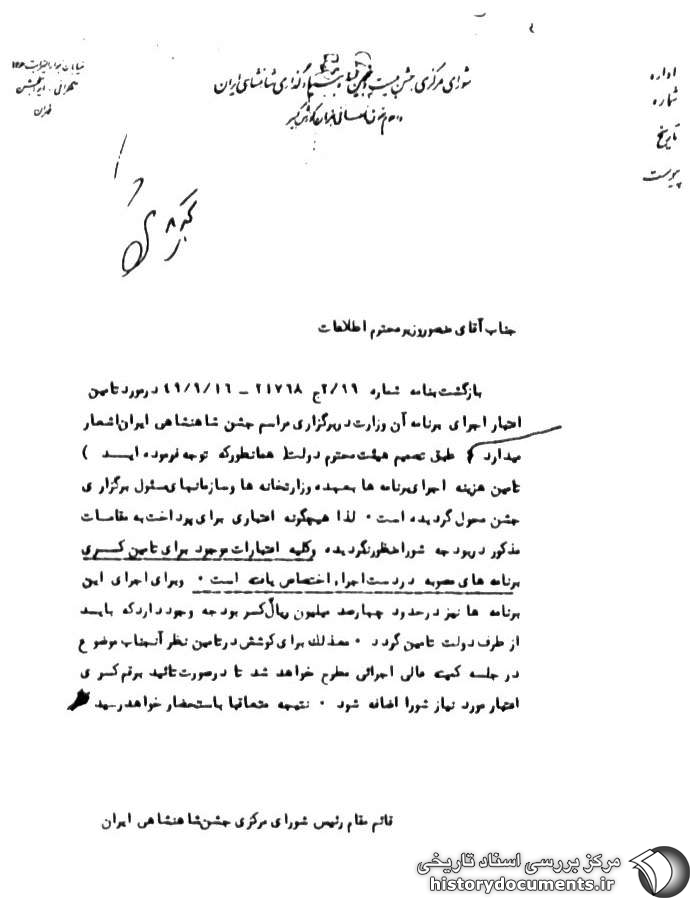 شورای مرکزی جشن دو هزار و پانصدمین سال بنیادگذاری شاهنشاهی ایران
اداره
شماره
تاریخ
پیوست
تهران
جناب آقای منصور وزیر محترم اطلاعات
بازگشت بنامه شماره ۲/۱۹ج ۲۱۷۶۸ – ۴۹/۹/۱۶ در مورد تامین
اعتبار اجرای برنامه آن وزارت در برگزاری مراسم جشن شاهنشاهی ایران اشعار
میدارد طبق تصمیم هیئت محترم دولت ( همانطور که توجه فرموده ایـــد )
تامین هزینه اجرای برنامه ها بعهده وزارتخانه ها و سازمانهای مسئول برگزاری
جشن محول گردیده است ۰ لذا هیچگونه اعتباری برای پرداخت به مقامات
مذکور در بودجه شورا منظور نگردیده و کلیه اعتبارات موجود برای تامین کســری
برنامه های مصوبه در دست اجراء اختصاص یافته است ۰ و برای اجرای این
برنامه ها نیز در حدود چهارصد میلیون ریال کسر بودجه وجود دارد که بایــد
از طرف دولت تامین گردد ۰ معذلک برای کوشش در تامین نظر آنجناب موضوع
در جلسه کمیته عالی اجرائی مطرح خواهد شد تا در صورت تائید برقم کسری
اعتبار مورد نیاز شورا اضافه شود ۰ نتیجه متعاقبا باستحضار خواهد رسید
قائم مقام رئیس شورای مرکزی جشن شاهنشاهی ایران
مرکز بررسی اسناد تاریخی
historydocuments.ir